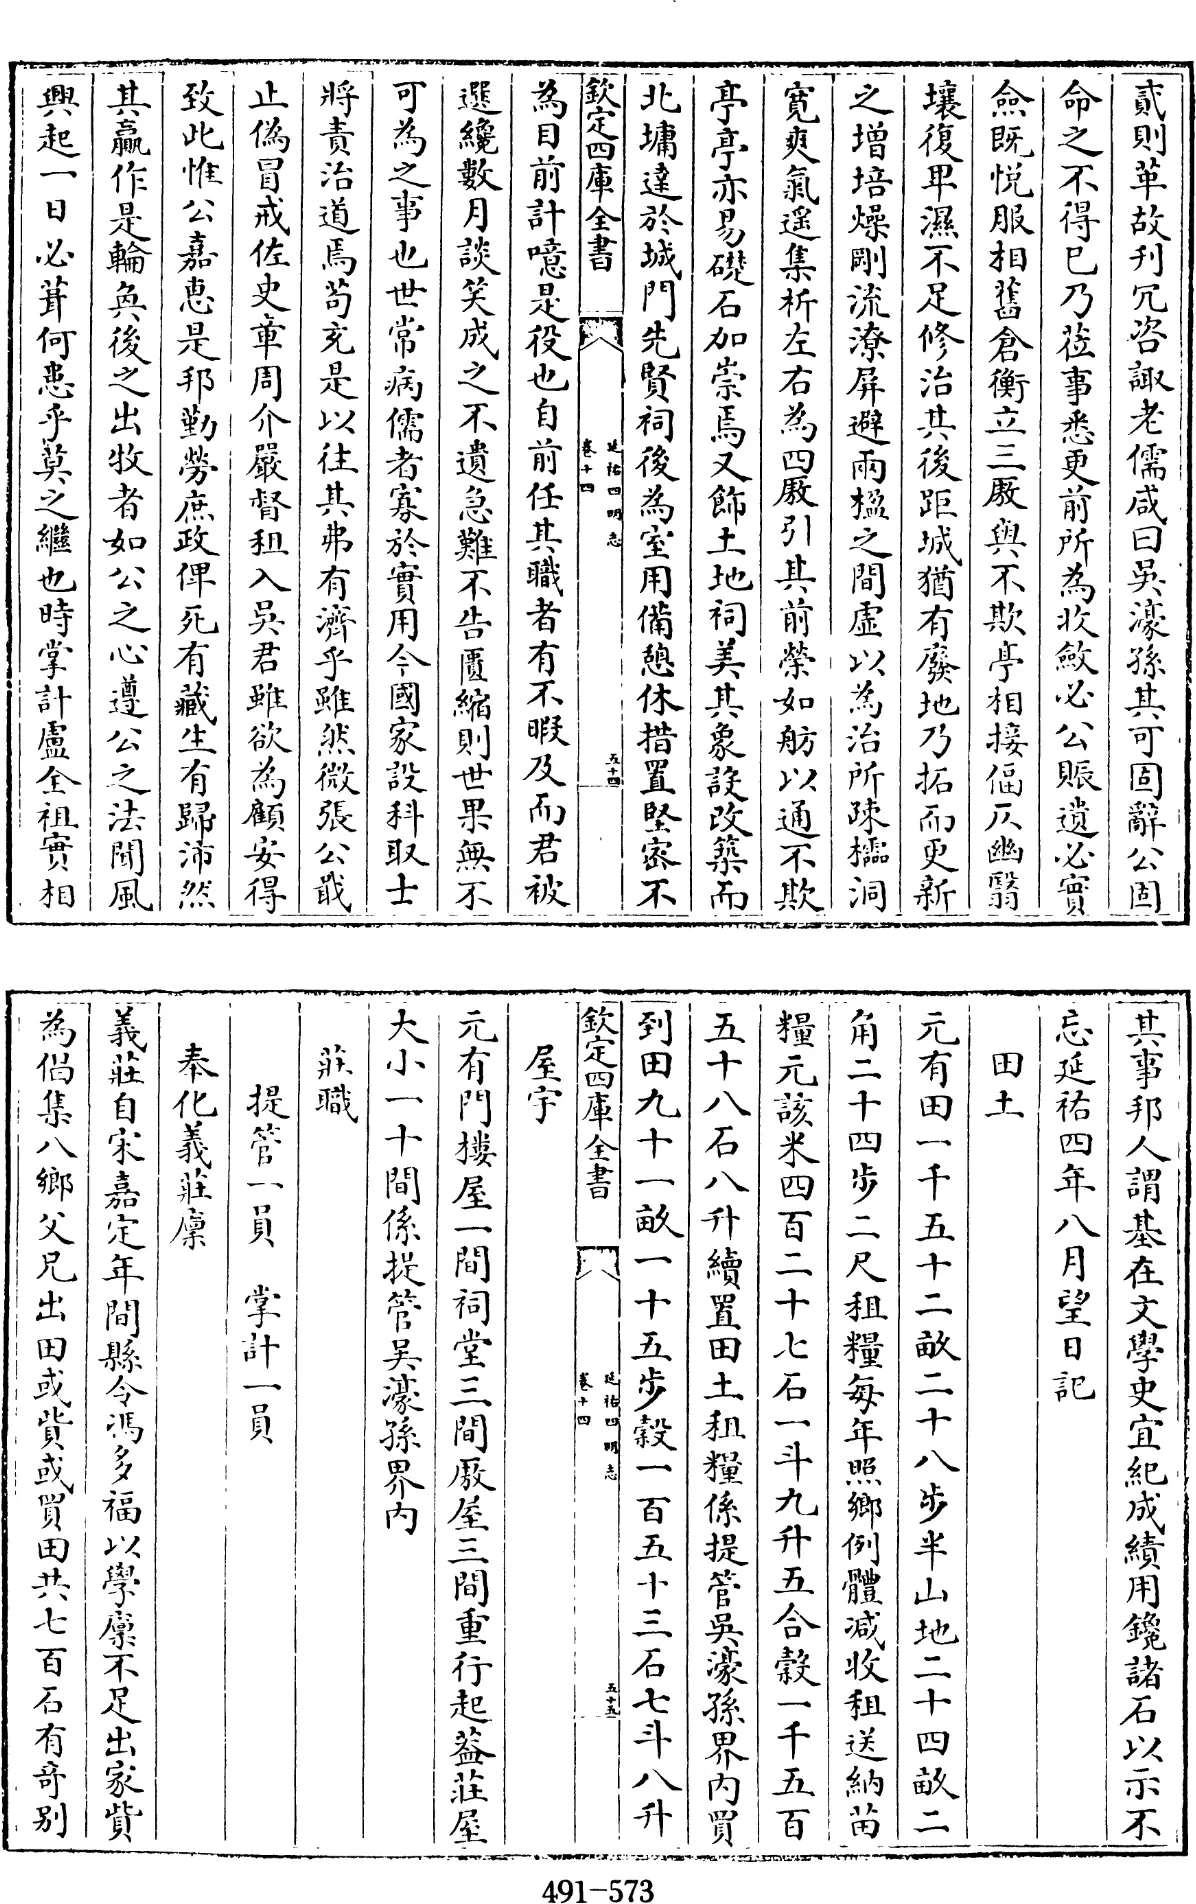 貳則革故刋冗咨諏老儒咸曰吳濠孫其可固辭公固
命之不得已乃莅事悉更前所為收斂必公賬遺必實
僉既悦服相舊倉衡立三厫與不欺亭相接偪仄幽翳
壤復卑濕不足修治其後距城猶有廢地乃拓而更新
之增培燥剛流潦屏避兩楹之間虛以為治所疎櫺洞
寛爽氣遥集析左右為四厫引其前榮如舫以通不欺
亭亭亦易礎石加崇焉又飾土地祠美其象設改築而
北墉達於城門先賢祠後為室用備憩休措置堅密不
欽定四庫全書
延祐四明志
卷十四
五十四
為目前計噫是役也自前任其職者有不暇及而君被
選纔數月談笑成之不遺急難不告匱縮則世果無不
可為之事也世常病儒者寡於實用今國家設科取士
將責治道焉茍充是以往其弗有濟乎雖然微張公戢
止偽冒戒佐史章周介嚴督租入吳君雖欲為顧安得
致此惟公嘉惠是邦勤勞庶政俾死有藏生有歸沛然
其贏作是輪奐後之出牧者如公之心遵公之法聞風
興起一日必葺何患乎莫之繼也時掌計盧全祖實相
其事邦人謂基在文學史宜紀成績用鑱諸石以示不
忘延祐四年八月望日記
田土
元有田一千五十二畝二十八步半山地二十四畝二
角二十四步二尺租糧每年照鄉例體减收租送納苗
糧元該米四百二十七石一斗九升五合穀一千五百
五十八石八升續置田土租糧係提管吳濠孫界内買
到田九十一畝一十五步穀一百五十三石七斗八升
欽定四庫全書
延祐四明志
卷十四
五十五
屋宇
元有門樓屋一間祠堂三間厫屋三間重行起葢莊屋
大小一十間係提管吳濠孫界内
莊職
提管一員　掌計一員
奉化義莊廪
義莊自宋嘉定年間縣令馮多福以學廪不足出家貲
為倡集八鄉父兄出田或貲或買田共七百石有竒别
491-573